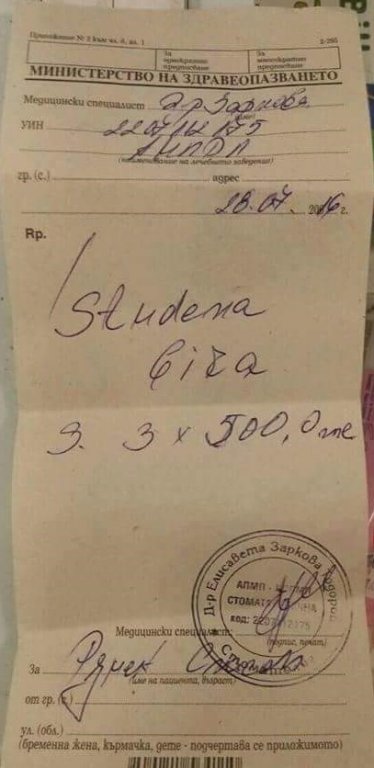 Приложение № 2 към чл. 6, ал. 1
2-265
За
еднократно
предписване
За
многократно
предписване
МИНИСТЕРСТВО НА ЗДРАВЕОПАЗВАНЕТО
Медицински специалист д-р Заркова
(име)
УИН 2207112175
АИПДП
(наименование на лечебното заведение)
гр. (с.) адрес
28.07. 2016 г.
Rp.
Studena
bira
S. 3 x 500,0 ml
Д-р Елисавета Заркова
АПМП -
СТОМАТОЛОГИЧНА
код: 2207112175
Медицински специалист:
(подпис, печат)
За Румен
(име на пациента, възраст)
от гр. (с.)
ул. (обл.)
(бременна жена, кърмачка, дете - подчертава се приложимото)